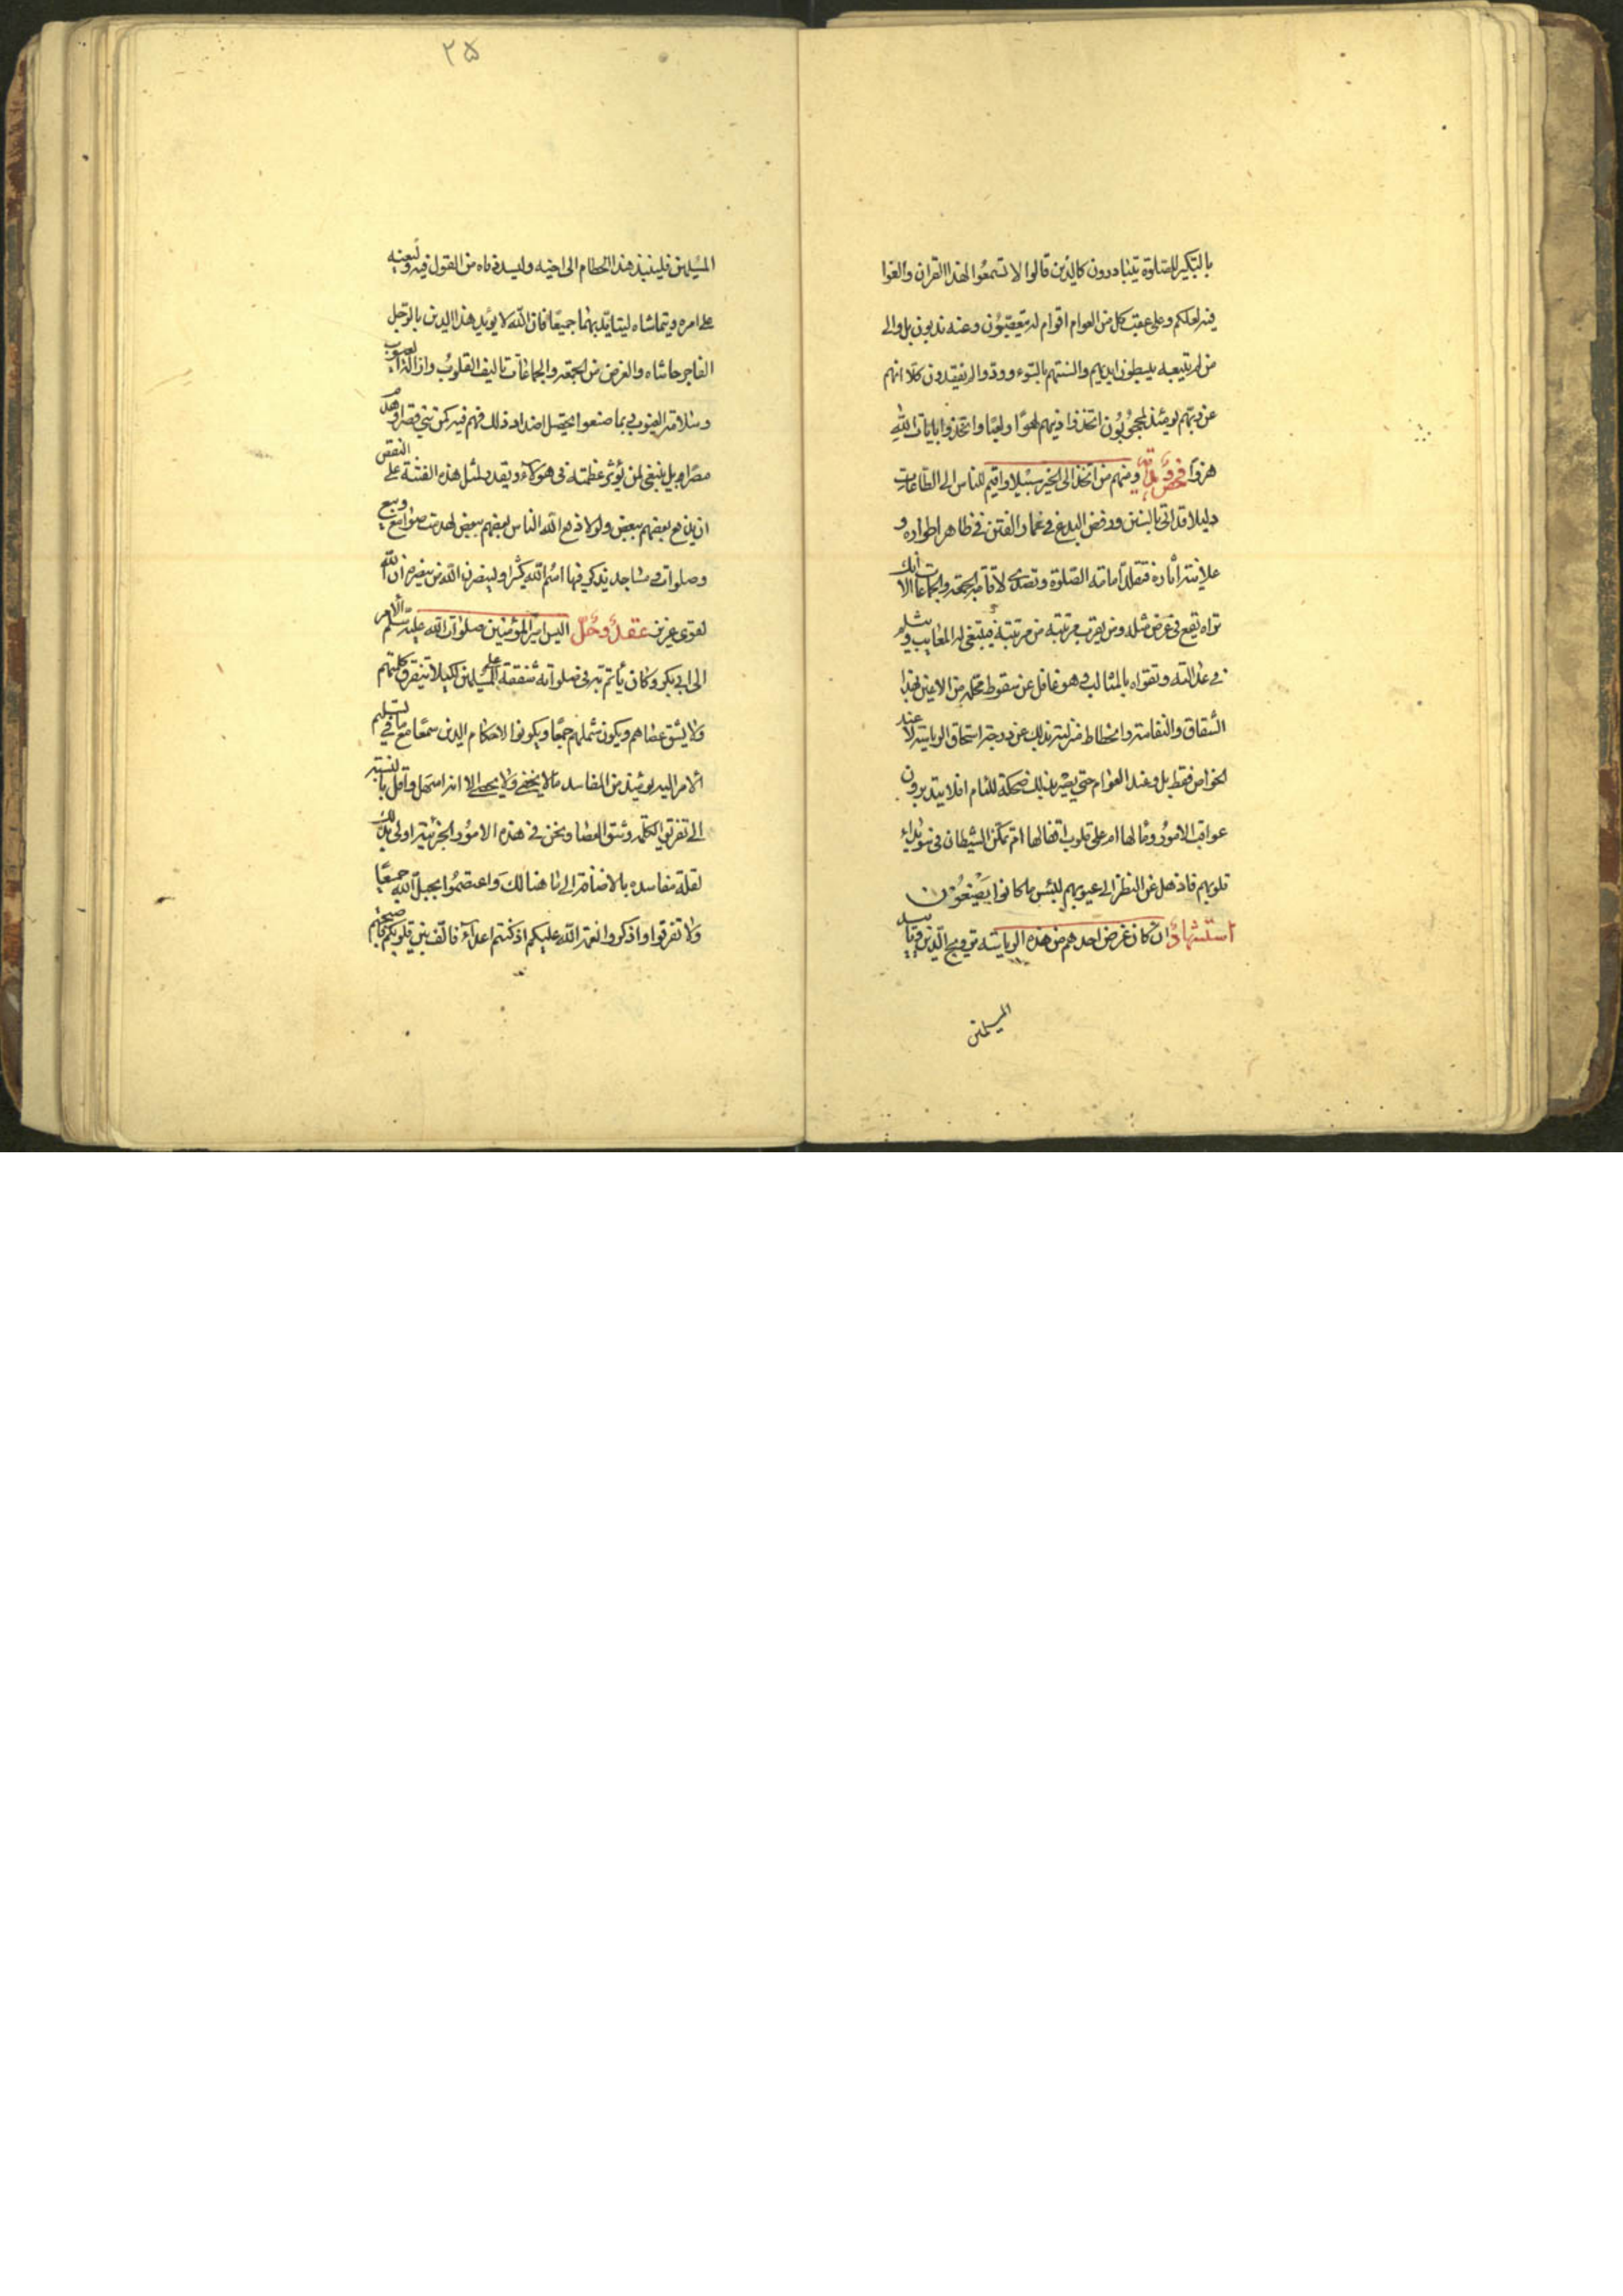 بالتكبير للصلوة يتبادرون كالذين قالوا لا تسمعوا لهذا القران والغوا
فيه لعلكم وعلى عقب كل من العوام اقوام له متعقبون وعنه يذبون بل والى
من لم يتبعه يبسطون ايديهم والسنتهم بالسوء وودوا لو يفقدون كلا انهم
عن ربهم يومئذ لمحجوبون اتخذوا دينهم لهوا ولعبا واتخذوا بايات الله
هزوا ومنهم من اتخذ الى الخير سبيلا واقيم للناس الى الطاعات
دليلا قد اتى بالسنن ورفض البدع في غمار الفتن في ظاهر اطواره و
علانية اثاره فتقلد امامة الصلوة وتصدى لاقامة الجمعة والجماعات الا انك
تراه يقع في عرض مثله ومن يقرب مرتبته من مرتبته فيبتغي له المعايب ويثلم
في عدالته وتقواه بالمثالب وهو غافل عن سقوط محله من الاعين بهذا
الشقاق والنفاسة وانحطاط منزلته بذلك عن درجة استحقاق الرياسة لا عند
الخواص فقط بل وعند العوام حتى يصير بذلك ضحكة للئام افلا يتدبرون
عواقب الامور ومالها ام على قلوب اقفالها ام تمكن الشيطان في سويداء
قلوبهم فاذهل عن النظر الى عيوبهم لبئس ما كانوا يصنعون
استشهاد ان كان غرض احدهم من هذه الرياسة ترويج الدين وتاييد
المسلمين
٢۵
المسلمين فلينبذ هذا الحطام الى اخيه وليسد فاه من القول فيه وليعنه
على امره ويتماشاه ليتايد بهما جميعا فان الله لا يؤيد هذا الدين بالرجل
الفاجر حاشاه والغرض من الجمعة والجماعات تاليف القلوب وازالة العيوب
وسلامة الغيوب بما صنعوا يحصل اضداد ذلك فهم فيه كمن بنى قصرا وهدم
مصرا وبل ينبغي لمن يؤثر عظمته في هؤلاء ويقدم لمثل هذه الفتنة على النقص
ان يدفع بعضهم ببعض ولولا دفع الله الناس بعضهم ببعض لهدمت صوامع وبيع
وصلوات ومساجد يذكر فيها اسم الله كثيرا ولينصرن الله من ينصره ان الله
لقوي عزيز عقد وحل اليس امير المؤمنين صلوات الله عليه سلم الامر
الى ابي بكر وكان ياتم به في صلواته شفقة على المسلمين لكيلا تتفرق كلمتهم
ولا يشق عصاهم ويكون شملهم جمعا ويكونوا لاحكام الدين سمعا مع ما في تسليم
الامر اليه يومئذ من المفاسد ما لا يخفى ولا يحصى الا انه اسهل واقل بالنسبة
الى تفريق الكلمة وشق العصا ونحن في هذه الامور الجزئية اولى بذلك
لقلة مفاسده بالاضافة الى ما هنالك واعتصموا بحبل الله جميعا
ولا تفرقوا واذكروا نعمة الله عليكم اذ كنتم اعداء فالف بين قلوبكم فاصبحتم